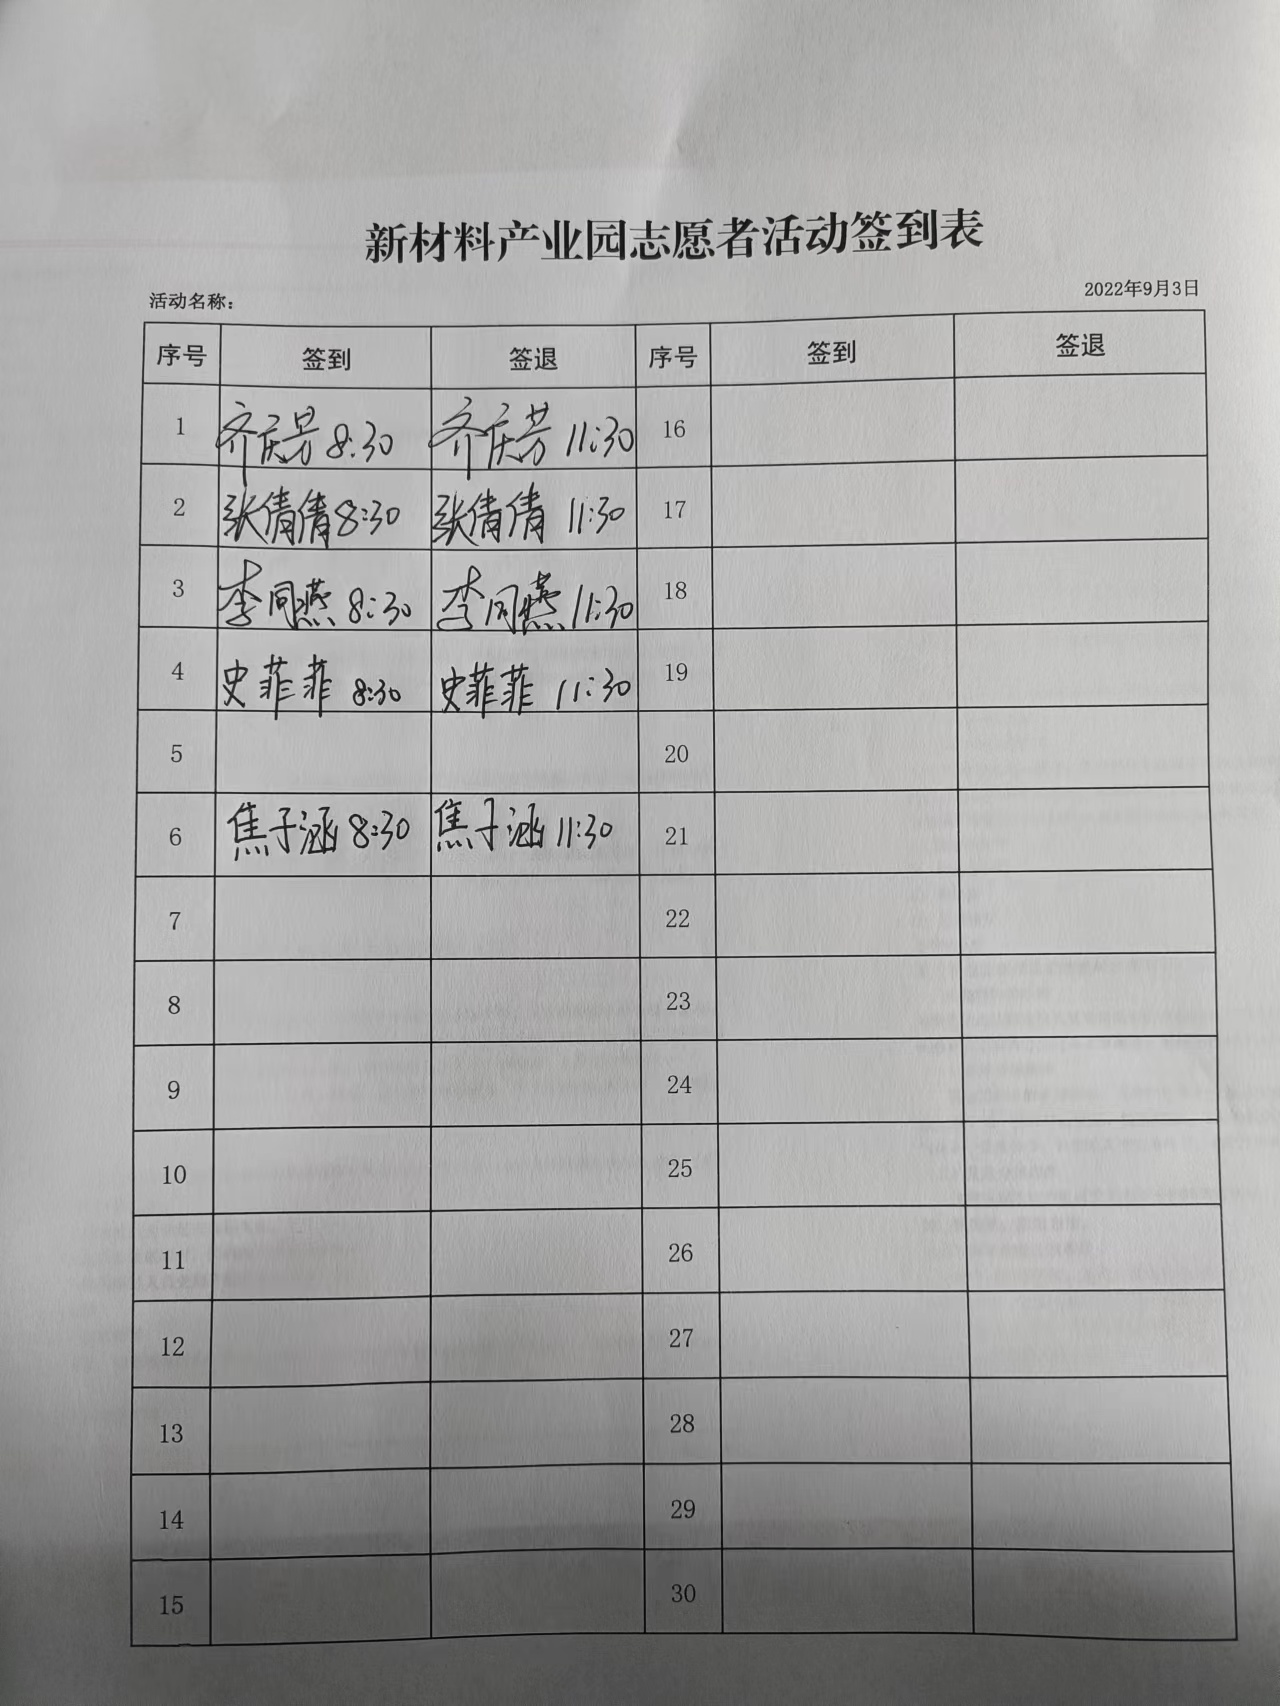 新材料产业园志愿者活动签到表
活动名称： 2022年9月3日
序号 签到 签退 序号 签到 签退
1 齐庆芳 8:30 齐庆芳 11:30 16
2 张倩倩 8:30 张倩倩 11:30 17
3 李同燕 8:30 李同燕 11:30 18
4 史菲菲 8:30 史菲菲 11:30 19
5 20
6 焦子涵 8:30 焦子涵 11:30 21
7 22
8 23
9 24
10 25
11 26
12 27
13 28
14 29
15 30